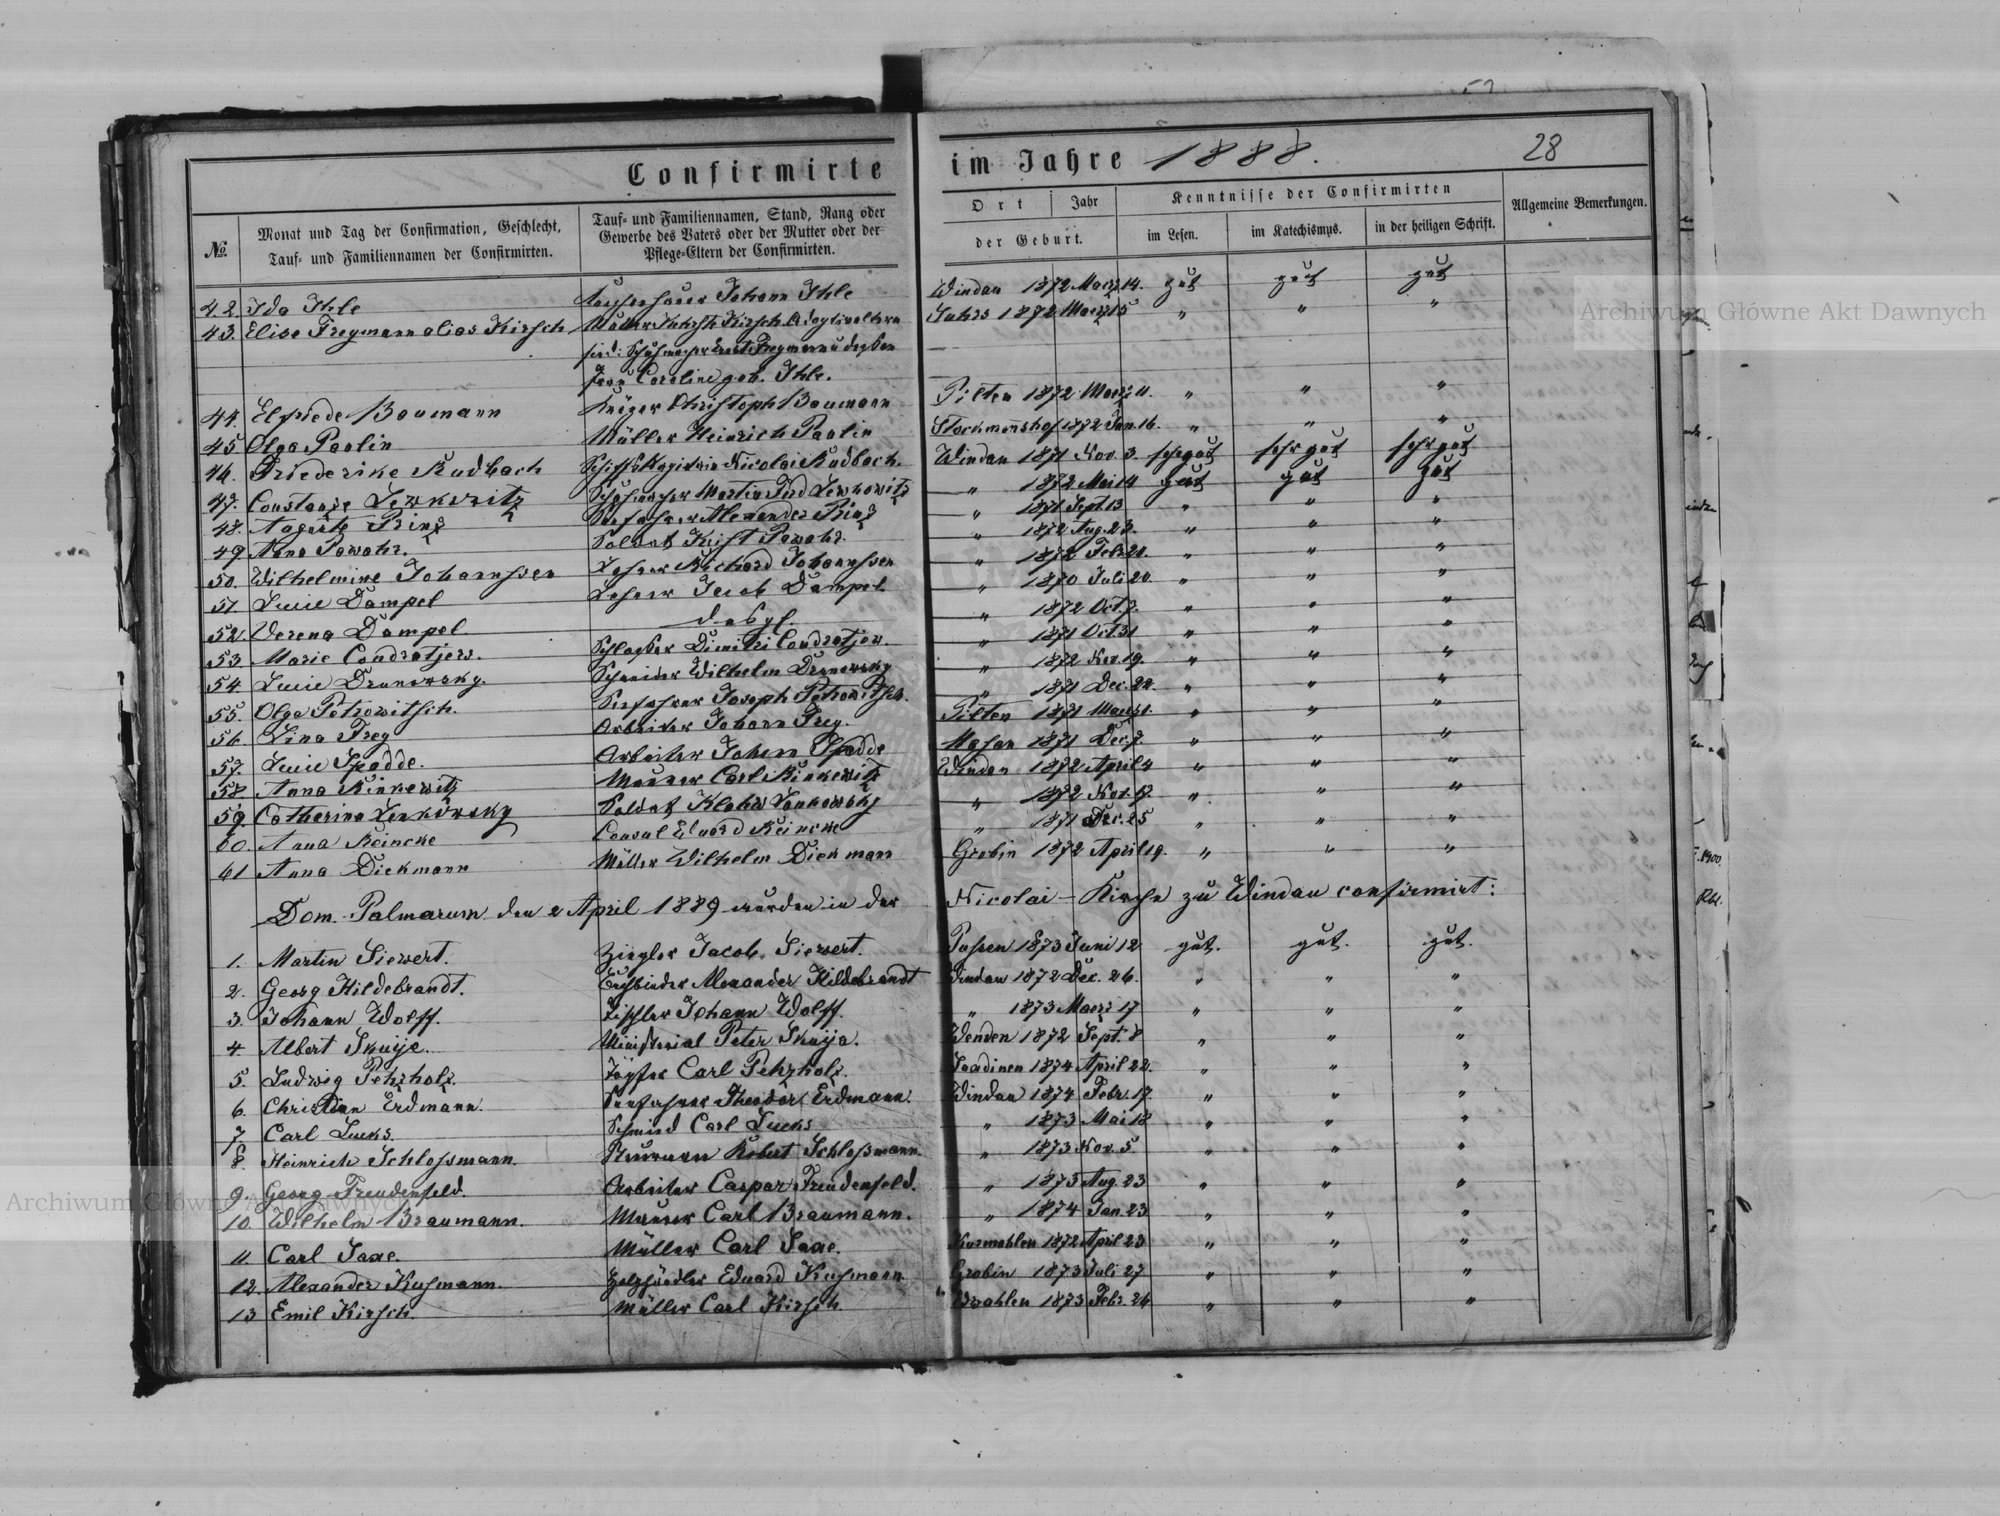 Confirmirte im Jahre 1888. 28
№. Monat und Tag der Confirmation, Geschlecht, Tauf- und Familiennamen der Confirmirten. Tauf- und Familiennamen, Stand, Rang oder Gewerbe des Vaters oder der Mutter oder der Pflege-Eltern der Confirmirten. Ort Jahr der Geburt. Kenntnisse der Confirmirten im Lesen. im Katechismus. in der heiligen Schrift. Allgemeine Bemerkungen.
42. Ida Ihle Johann Ihle Windau 1872 Maerz 14. gut gut gut
43. Elise Freymann alias Kirsch Müller Kirsch Adoptiveltern 1872 Maerz 15 " " "
sind: Schuhmacher Ernst Freymann u dessen
Frau Caroline geb. Ihle.
44. Elfriede Baumann Krüger Christoph Baumann Pilten 1872 Maerz 11. " " "
45 Olga Paulin Müller Heinrich Paulin Stockmannshof 1872 Jan. 16. " " "
46. Friederike Kudbach Nicolai Kudbach. Windau 1871 Nov. 3. sehr gut sehr gut sehr gut
47. Constanze Lewkowitz Schuhmacher Martin Lewkowitz " 1872 Mai 14 gut gut gut
48. Auguste Prinz Seefahrer Alexander Prinz " 1871 Sept. 13 " " "
49 Anna Pawahr. Soldat Krist Pawahr. " 1872 Aug. 23. " " "
50. Wilhelmine Johannssen Lehrer Richard Johannssen " 1872 Febr. 21. " " "
51 Lucie Dampel Lehrer Jacob Dampel. " 1870 Juli 20 " " "
52. Verena Dampel. desgl. " 1872 Oct. 7. " " "
53 Marie Condratjew. Schlosser Dimitri Condratjew. " 1871 Oct 31 " " "
54. Lucie Dranowsky. Schneider Wilhelm Dranowsky " 1872 Nov. 19. " " "
55. Olga Petrowitsch. Seefahrer Joseph Petrowitsch. " 1871 Dec. 22. " " "
56. Lina Frey Arbeiter Johann Frey. Pilten 1871 Maerz 1. " " "
57. Lucie Spadde. Arbeiter Johann Spadde 1871 Dec. 7. " " "
58. Anna Rinkewitz Maurer Carl Rinkewitz Windau 1872 April 4 " " "
59. Catherina Lenkowsky Soldat " 1872 Nov. 17. " " "
60. Anna Reincke Consul Eduard Reincke " 1871 Dec. 25 " " "
61 Anna Diekmann Müller Wilhelm Diekmann Grobin 1872 April 19. " " "
Dom. Palmarum den 2 April 1889 wurden in der Nicolai-Kirche zu Windau confirmirt:
1. Martin Siewert. Ziegler Jacob Siewert. Passen 1873 Juni 12 gut. gut. gut.
2. Georg Hildebrandt. Buchbinder Alexander Hildebrandt Windau 1872 Dec. 26. " " "
3. Johann Wolff. Tischler Johann Wolff. " 1873 Maerz 17 " " "
4. Albert Skuije. Ministerial Peter Skuija. Wenden 1872 Sept. 8 " " "
5. Ludwig Pehrholz. Töpfer Carl Pehrholz. 1874 April 22. " " "
6. Christian Erdmann. Seefahrer Theodor Erdmann. Windau 1874 Febr. 17. " " "
7. Carl Lucks. Schmied Carl Lucks " 1873 Mai 18 " " "
8. Heinrich Schlossmann. Steuermann Robert Schlossmann. " 1873 Nov. 5. " " "
9. Georg Freudenfeld. Arbeiter Caspar Freudenfeld. " 1873 Aug. 23 " " "
10. Wilhelm Braumann. Maurer Carl Braumann. " 1874 Jan. 23 " " "
11. Carl Saxe. Müller Carl Saxe. 1872 April 23 " " "
12. Alexander Kuhmann. Holzhändler Eduard Kuhmann Grobin 1873 Juli 27 " " "
13 Emil Kirsch. Müller Carl Kirsch. 1873 Febr. 26 " " "
Archiwum Główne Akt Dawnych
Archiwum Główne Akt Dawnych